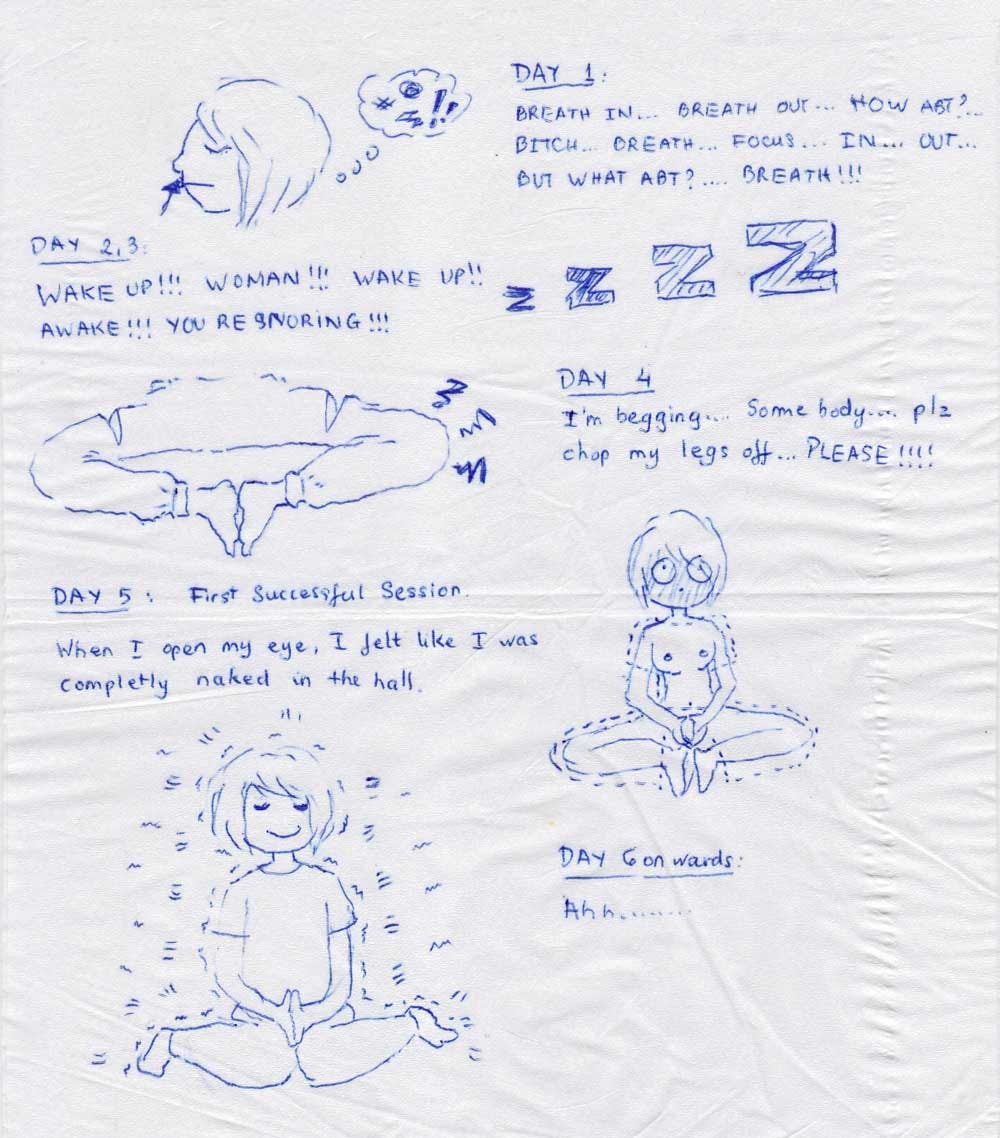 DAY 1:
BREATH IN... BREATH OUT... HOW ABT?...
BITCH... BREATH... FOCUS... IN... OUT...
BUT WHAT ABT?.... BREATH!!!
!!
DAY 2,3:
WAKE UP!!! WOMAN!!! WAKE UP!!
AWAKE!!! YOU RE SNORING!!!
z z z Z
DAY 4
I'm begging.... Some body.... plz
chop my legs off... PLEASE!!!!
DAY 5: First Successful Session.
When I open my eye, I felt like I was
completly naked in the hall.
DAY 6 onwards:
Ahh.........